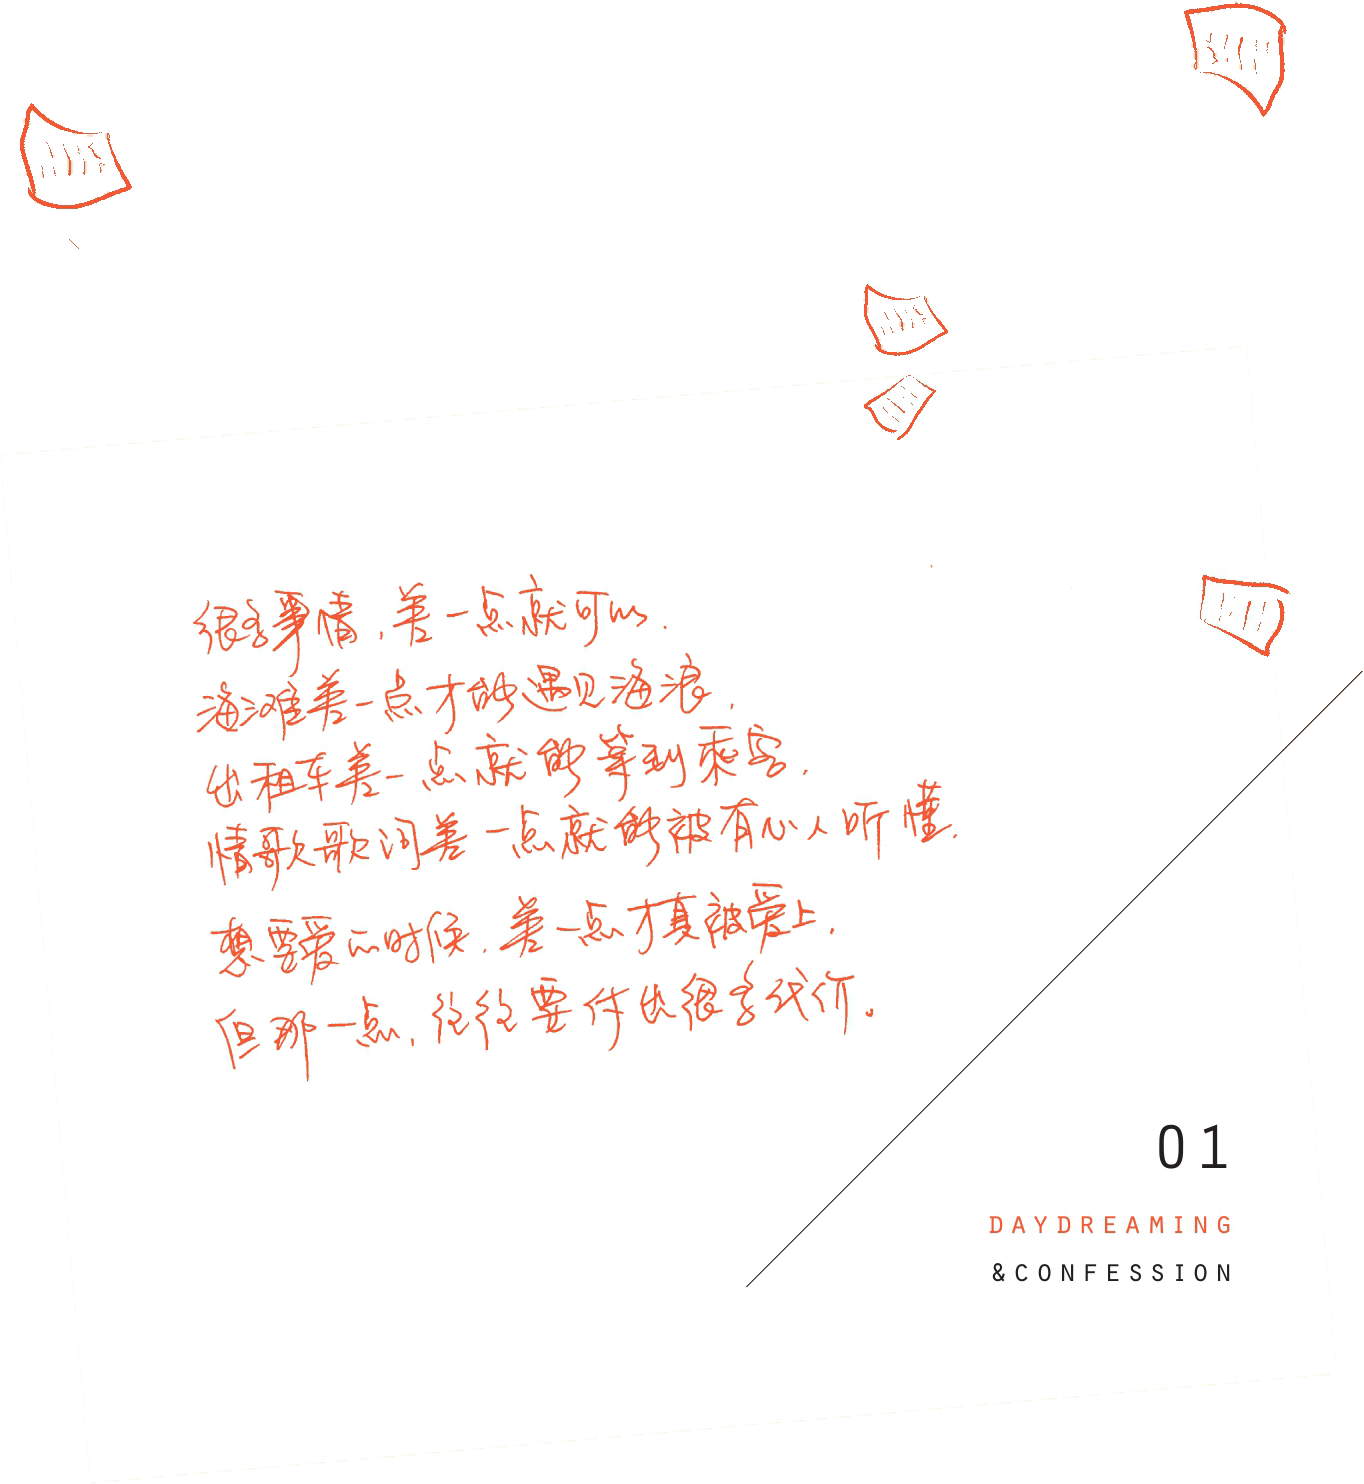 很多事情,差一点就可以.
海滩差一点才能遇见海浪,
出租车差一点就能等到乘客,
情歌歌词差一点就能被有心人听懂.
想要爱的时候,差一点才真被爱上,
但那一点,往往要付出很多代价。
01
DAYDREAMING
&CONFESSION